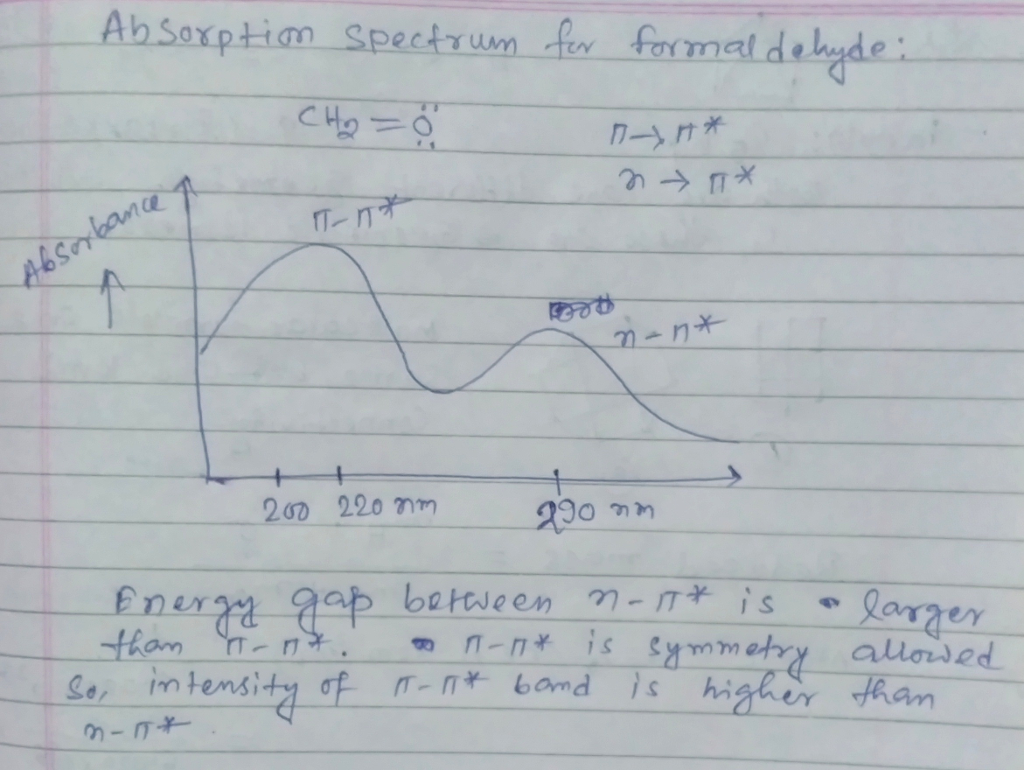 Absorption spectrum for formaldehyde:
CH₂=Ö:
π→π*
n→π*
π-π*
Absorbance
n-π*
200 220 nm 290 nm
Energy gap between n-π* is larger
than π-π*. π-π* is symmetry allowed
So, intensity of π-π* band is higher than
n-π*.